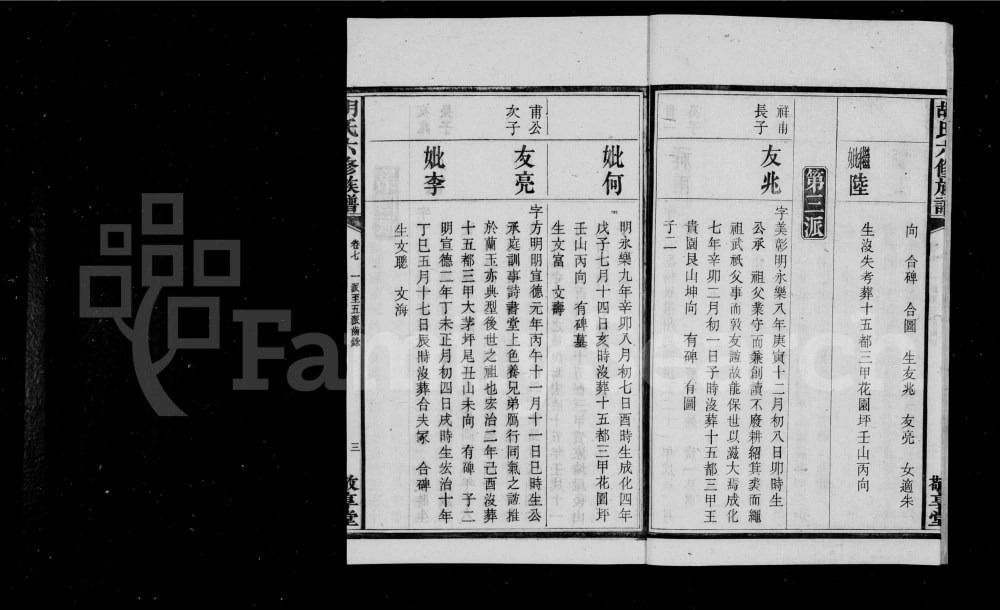 胡氏六修族譜
敬享堂
向 合碑 合圖 生友兆 友亮 女適朱
繼妣陸
生沒失考葬十五都三甲花園坪壬山丙向
第三派
祥甫長子
友兆
字美彰明永樂八年庚寅十二月初八日卯時生
公承 祖父業守而兼創讀不廢耕紹箕裘而繩
祖武祇父事而敦友誼故能保世以滋大焉成化
七年辛卯二月初一日子時沒葬十五都三甲王
貴園艮山坤向 有碑 有圖
子二
妣何
明永樂九年辛卯八月初七日酉時生成化四年
戊子七月十四日亥時沒葬十五都三甲花園坪
壬山丙向 有碑墓
生文富 文壽
甫公次子
友亮
字方明明宣德元年丙午十一月十一日巳時生公
承庭訓事詩書堂上色養兄弟鴈行同氣之誼推
於蘭玉亦典型後世之祖也宏治二年己酉沒葬
十五都三甲大茅坪尾丑山未向 有碑 子二
妣李
明宣德二年丁未正月初四日戌時生宏治十年
丁巳五月十七日辰時沒葬合夫冢 合碑
生文聰 文海
胡氏六修族譜
卷七 一派至五派齒錄
三
敬享堂
FamilySearch